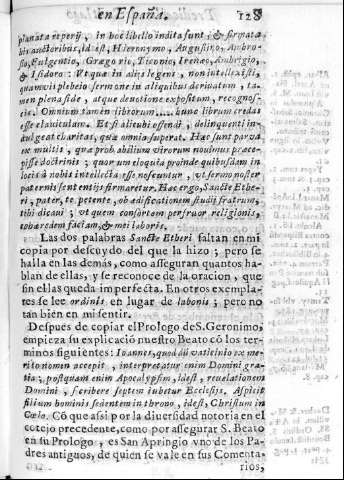 en España. 128
planata reperij, in hoc libello indita sunt; & firmata
his auctoribus, id est, Hieronymo, Augustino, Ambro-
sio, Fulgentio, Gregorio, Ticonio, Ireneo, Ambrigio,
& Isidoro: Vt quæ in alijs legens, non intellexisti,
quamvis plebeio sermone in aliquibus derivatum, ta-
men plena side, atque devotione expositum, recognos-
cis. Omnium tamen librorum hunc librum credas
esse claviculam. Et si alicubi offendi, delinquenti in-
dulgeat charitas, quæ omnia superat. Hæc sunt parva
ex multis, quæ prob abilium virorum novimus præce-
pisse doctrinis; quorum eloquia proinde quibusdam in
locis à nobis intellecta esse noscuntur, vt sermo noster
paternis sententijs firmaretur. Hæc ergo, Sancte Ethe-
ri, pater, te petente, ob ædificationem studij fratrum,
tibi dicavi; vt quem consortem perfruor religionis,
cohæredem faciam, & mei laboris.
Las dos palabras Sancte Etheri faltan en mi
copia por descuydo del que la hizo; pero se
halla en las demás, como asseguran quantos ha-
blan de ellas, y se reconoce de la oracion, que
sin ellas queda imperfecta. En otros exempla-
res se lee ordinis en lugar de laboris; pero no
tan bien en mi sentir.
Despues de copiar el Prologo de S. Geronimo,
empieza su explicació nuestro Beato có los ter-
minos siguientes: Ioannes, quod dil vaticinio ex me-
rito nomen accepit, interpretatur enim Domini gra-
tia; postquam enim Apocalypsim, id est, revelationem
Domini, scribere septem iubetur Ecclesijs, Aspicit
filium hominis sedentem in throno, id est, Christum in
Cœlo. Có que assi por la diversidad notoria en el
cotejo precedente, como por assegurar S. Beato
en su Prologo, es San Apringio vno de los Pa-
dres antiguos, de quien se vale en sus Comenta-
rios,